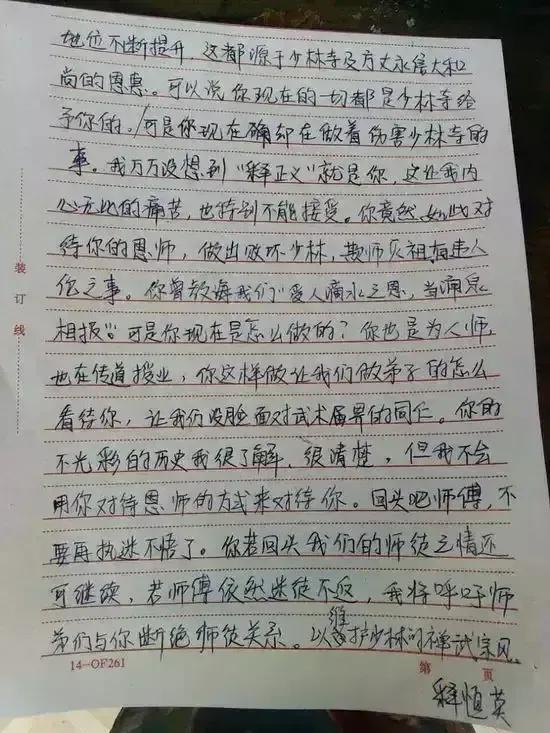 地位不断提升，这都源于少林寺及方丈永信大和
尚的恩惠。可以说你现在的一切都是少林寺给
予你的。可是你现在确却在做着伤害少林寺的
事。我万万没想到“释正义”就是你，这让我内
心无比的痛苦，也特别不能接受。你竟然如此对
待你的恩师，做出败坏少林，欺师灭祖有违人
伦之事。你曾教诲我们“爱人滴水之恩，当涌泉
相报”。可是你现在是怎么做的？你也是为人师，
也在传道授业，你这样做让我们做弟子的怎么
看待你，让我们没脸面对武术届界的同仁。你的
不光彩的历史我很了解、很清楚，但我不会
用你对待恩师的方式来对待你。回头吧师傅，不
要再执迷不悟了。你若回头我们的师徒之情还
可继续，若师傅依然迷徒不返，我将呼吁师
弟们与你断绝师徒关系。以维护少林的禅武宗风。
14-OF261 第 页
释恒英
装订线